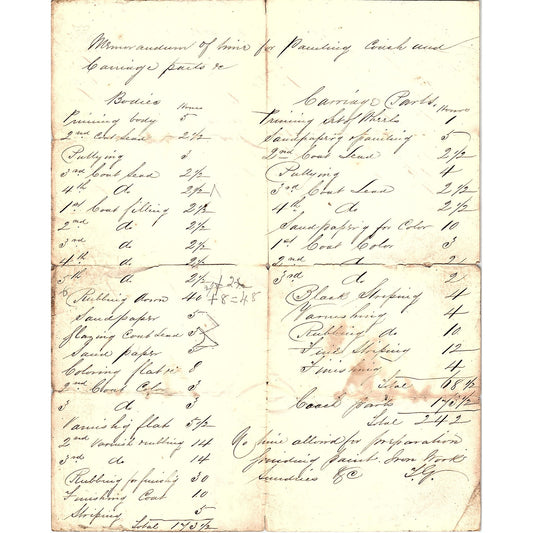 Memorandum of time for Painting Coach and
Carriage parts &c
Bodies Hours
Priming body 5
2nd Coat Lead 2 1/2
Puttying 3
3rd Coat Lead 2 1/2
4th do 2 1/2
1st Coat filling 2 1/2
2nd do 2 1/2
3rd do 2 1/2
4th do 2 1/2
5th do 2 1/2
Rubbing down 40
+8=48
Sandpaper 5
Coat Lead
Sand paper
Coloring flat 8
2nd Coat Color 3
3 do 3
Varnish flat 5 1/2
2nd Varnish rubbing 14
3rd do 14
Rubbing for finishing 30
Finishing Coat 10
Striping 5
Total 173 1/2
Carriage Parts Hours
Priming Wheels 1
Sandpapering & painting 5
2nd Coat Lead 2 1/2
Puttying 4
3rd Coat Lead 2 1/2
4th " do 2 1/2
Sandpapering for Color 10
1st Coat Color 3
2nd do 2
3rd do 2
Black Striping 4
Varnishing 4
Rubbing do 10
Fine Striping 12
Finishing 4
Total 68 1/2
Coach parts 173 1/2
Total 242
No time allowed for preparation
Grinding paint. Iron Work
Sundries &c